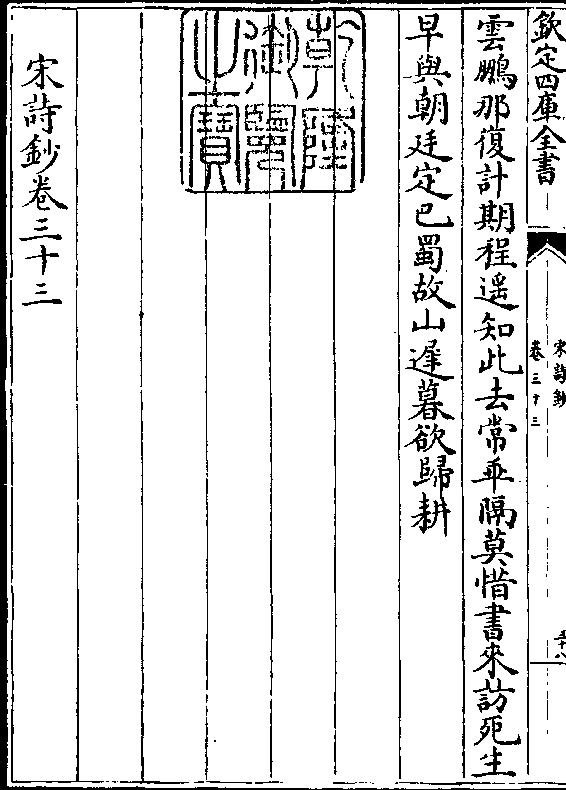 欽定四庫全書
宋詩鈔
卷三十三
五十八
雲鵬那復計期程遥知此去常乖隔莫惜書來訪死生
早與朝廷定巴蜀故山遲暮欲歸耕
乾隆御覽之寶
宋詩鈔卷三十三